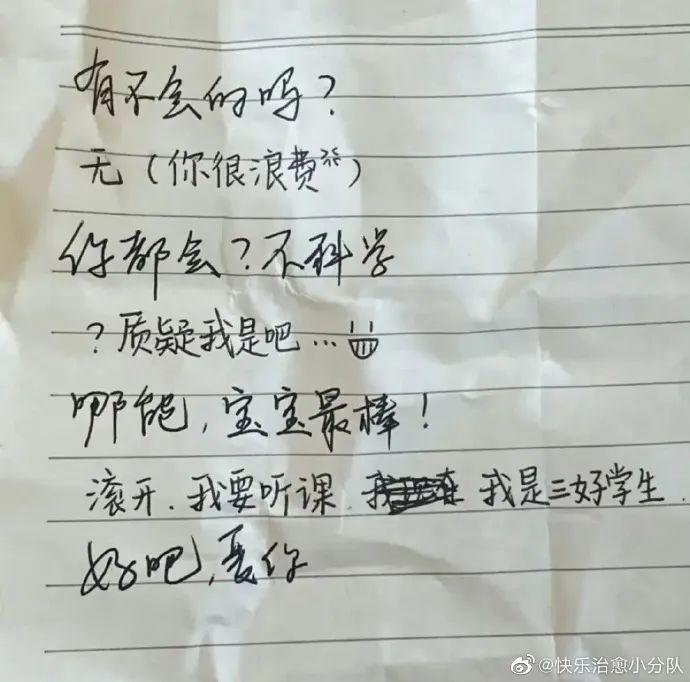 有不会的吗？
无（你很浪费）
你都会？不科学
？质疑我是吧…
哪能，宝宝最棒！
滚开．我要听课．我是三好学生．
好吧，爱你
@快乐治愈小分队